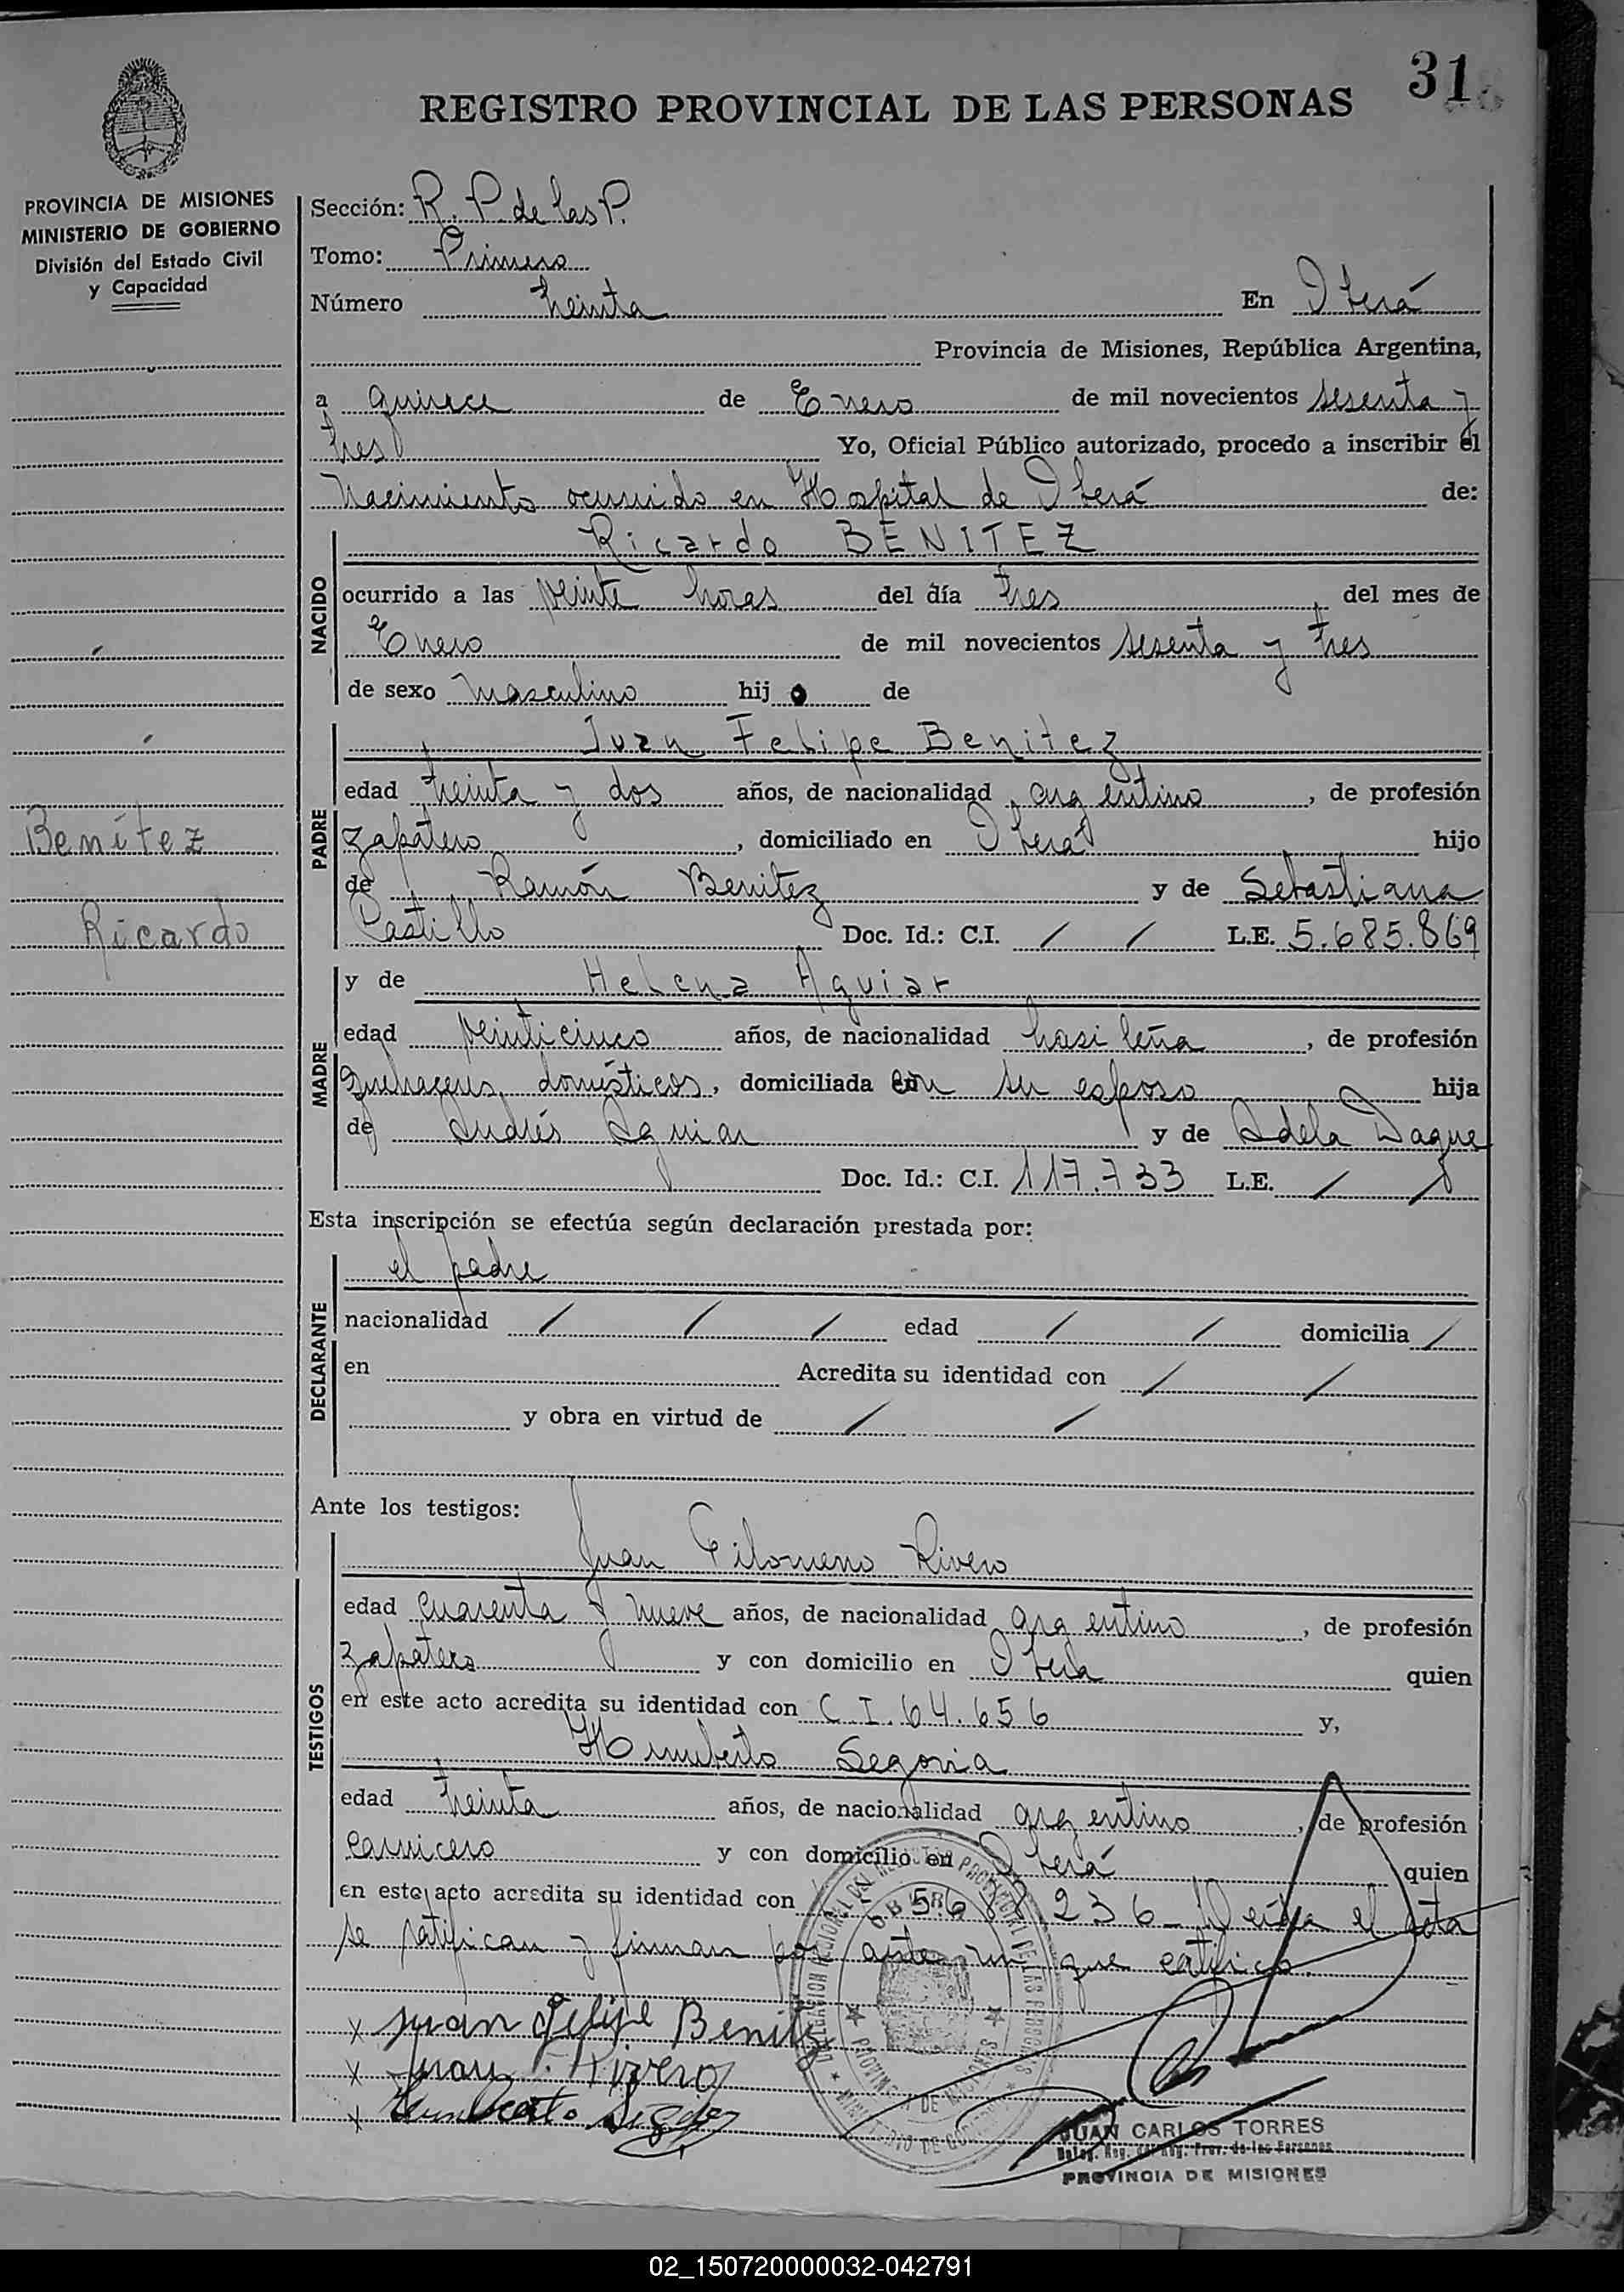 31
REGISTRO PROVINCIAL DE LAS PERSONAS
PROVINCIA DE MISIONES
MINISTERIO DE GOBIERNO
División del Estado Civil
y Capacidad
Sección: R. P. de las P.
Tomo: Primero
Número treinta En Oberá
Provincia de Misiones, República Argentina,
a quince de Enero de mil novecientos sesenta y
tres Yo, Oficial Público autorizado, procedo a inscribir el
Nacimiento ocurrido en Hospital de Oberá de:
Ricardo BENITEZ
NACIDO
ocurrido a las veinte horas del día tres del mes de
Enero de mil novecientos sesenta y tres
de sexo masculino hijo de
Juan Felipe Benitez
PADRE
edad treinta y dos años, de nacionalidad argentino, de profesión
zapatero, domiciliado en Oberá hijo
de Ramón Benitez y de Sebastiana
Castillo Doc. Id.: C.I. / / L.E. 5.685.869
Benítez
Ricardo
MADRE
y de Helena Aguiar
edad veinticinco años, de nacionalidad brasileña, de profesión
quehaceres domésticos, domiciliada con su esposo hija
de Andrés Aguiar y de Adela Daque
Doc. Id.: C.I. 117.733 L.E. / /
Esta inscripción se efectúa según declaración prestada por:
DECLARANTE
el padre
nacionalidad / / / edad / / domicilia /
en Acredita su identidad con / /
y obra en virtud de / /
Ante los testigos:
TESTIGOS
Juan Filomeno Rivero
edad cuarenta y nueve años, de nacionalidad argentino, de profesión
zapatero y con domicilio en Oberá quien
en este acto acredita su identidad con C.I. 64.656 y,
Humberto Segovia
edad treinta años, de nacionalidad argentino, de profesión
carnicero y con domicilio en Oberá quien
en este acto acredita su identidad con 236 - Leída el acta
se ratifican y firman por ante mi que certifico.
x Juan Felipe Benitez
x Juan F. Rivero
x Humberto
OBERA
PROVINCIA DE MISIONES
MINISTERIO DE GOBIERNO
JUAN CARLOS TORRES
Deleg. Reg. del Reg. Prov. de las Personas
PROVINCIA DE MISIONES
02_150720000032-042791